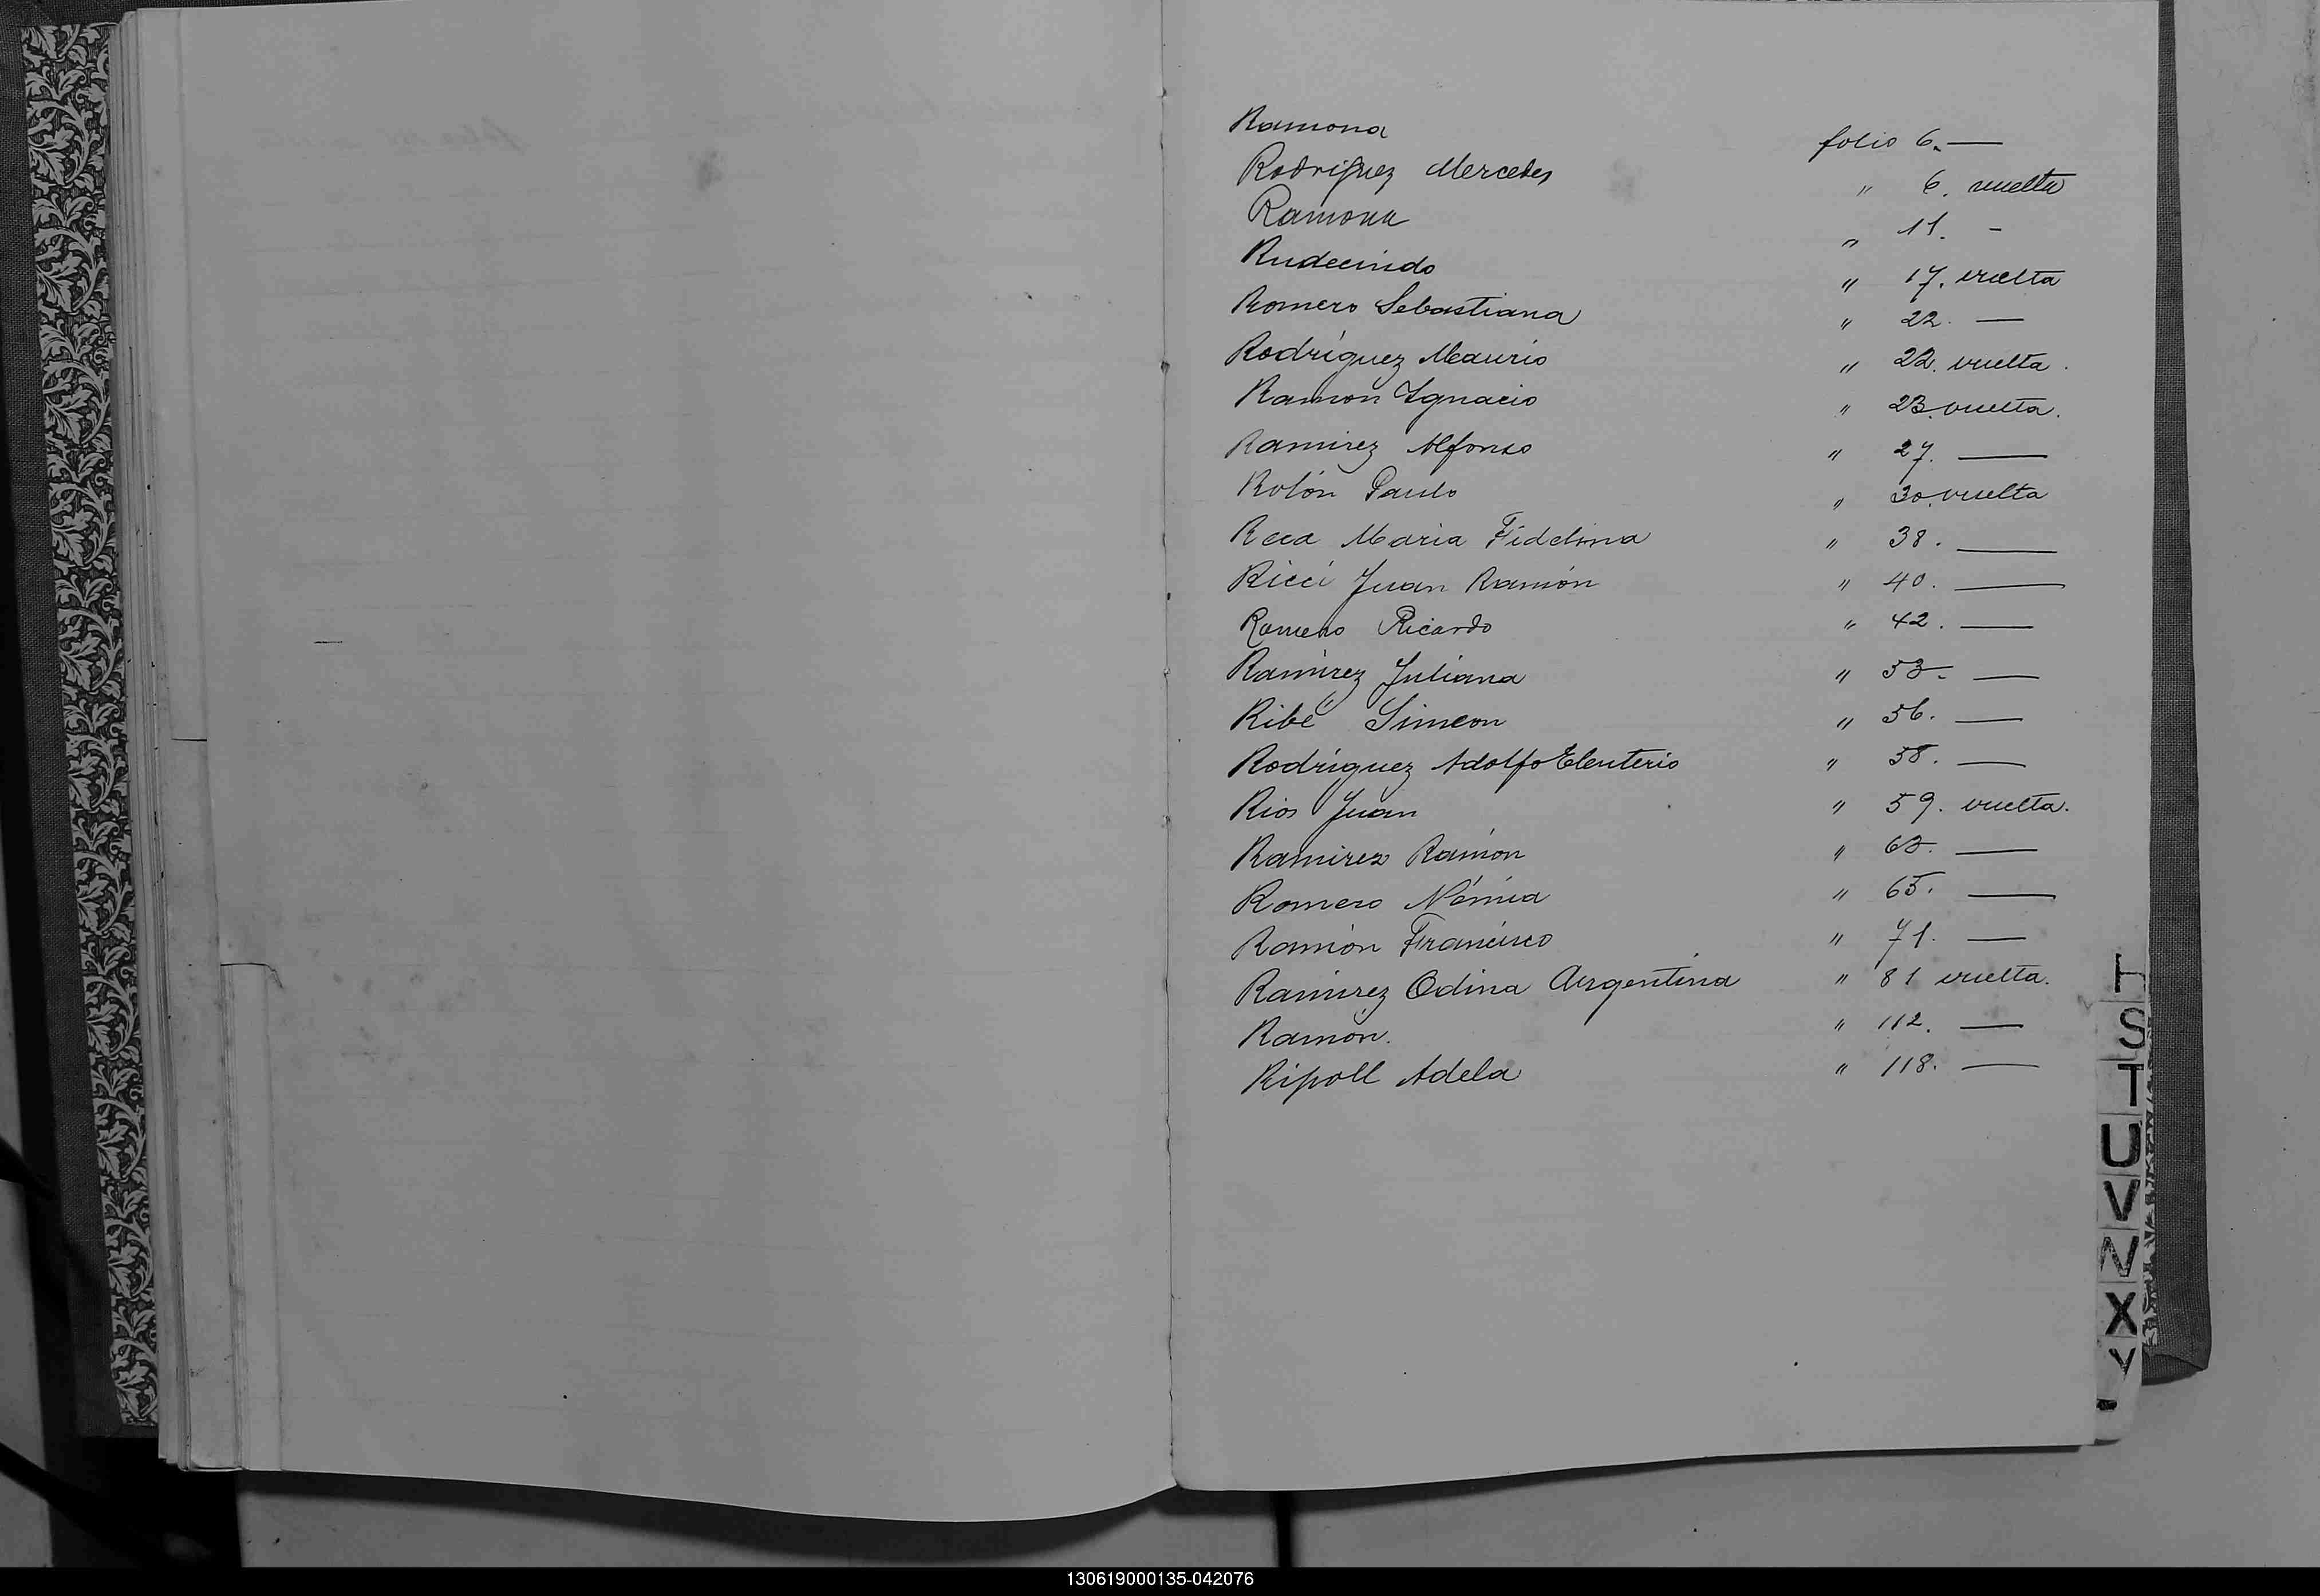 Ramona folio 6. —
Rodriguez Mercedes " 6. vuelta
Ramona " 11. -
Rudecindo " 17. vuelta
Romero Sebastiana " 22. —
Rodríguez Maurio " 22. vuelta.
Ramon Ignacio " 23. vuelta.
Ramirez Alfonso " 27. —
Rolón Paulo " 30. vuelta
Reca Maria Fidelina " 38. —
Ricci Juan Ramón " 40. —
Romero Ricardo " 42. —
Ramírez Juliana " 53. —
Ribé Simeon " 56. —
Rodríguez Adolfo Eleuterio " 58. —
Rios Juan " 59. vuelta.
Ramirez Ramón " 63. —
Romero Némia " 65. —
Ramón Francisco " 71. —
Ramírez Odina Argentina " 81 vuelta.
Ramón. " 112. —
Ripoll Adela " 118. —
S
T
U
V
X
Y
130619000135-042076